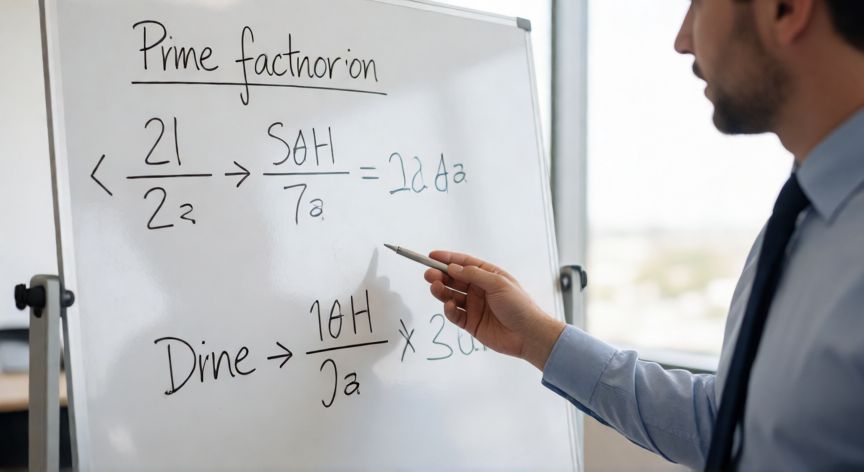 Prime factnorion
< 21/2a → SθH/7a = 2d da
Dine → 1θH/Ja × 3